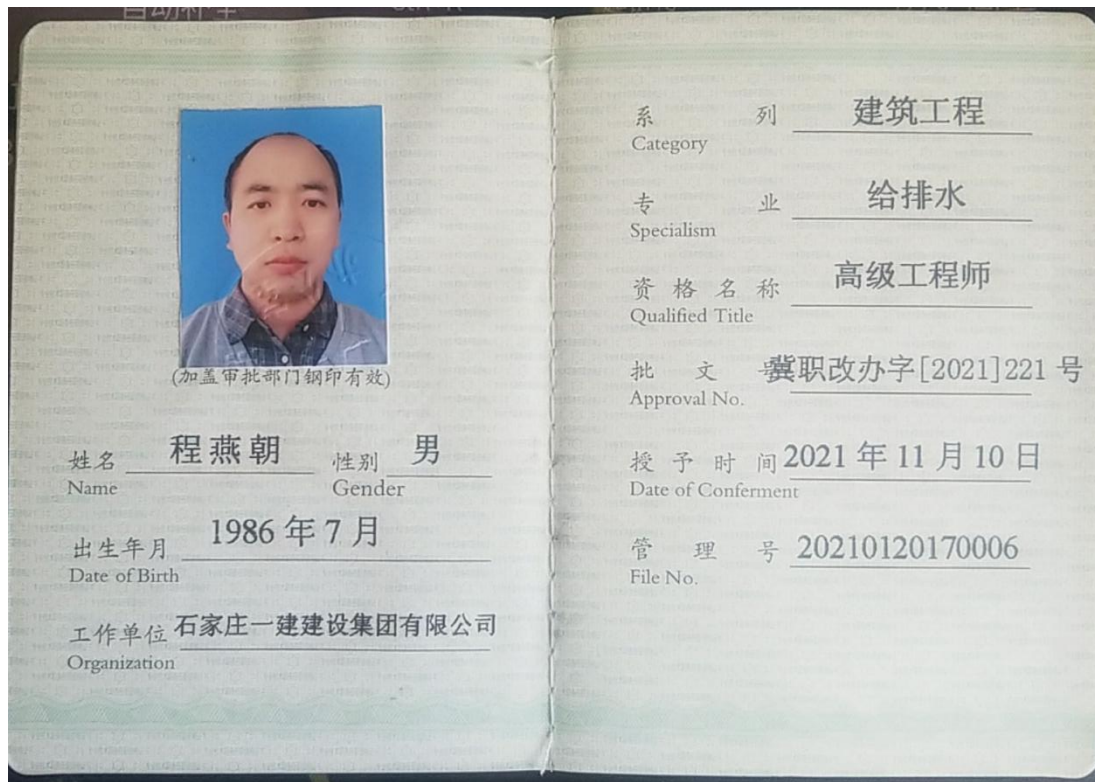 (加盖审批部门钢印有效)
姓名 程燕朝 性别 男
Name Gender
出生年月 1986 年 7 月
Date of Birth
工作单位 石家庄一建建设集团有限公司
Organization
系列 建筑工程
Category
专业 给排水
Specialism
资格名称 高级工程师
Qualified Title
批文号 冀职改办字[2021]221 号
Approval No.
授予时间 2021 年 11 月 10 日
Date of Conferment
管理号 20210120170006
File No.